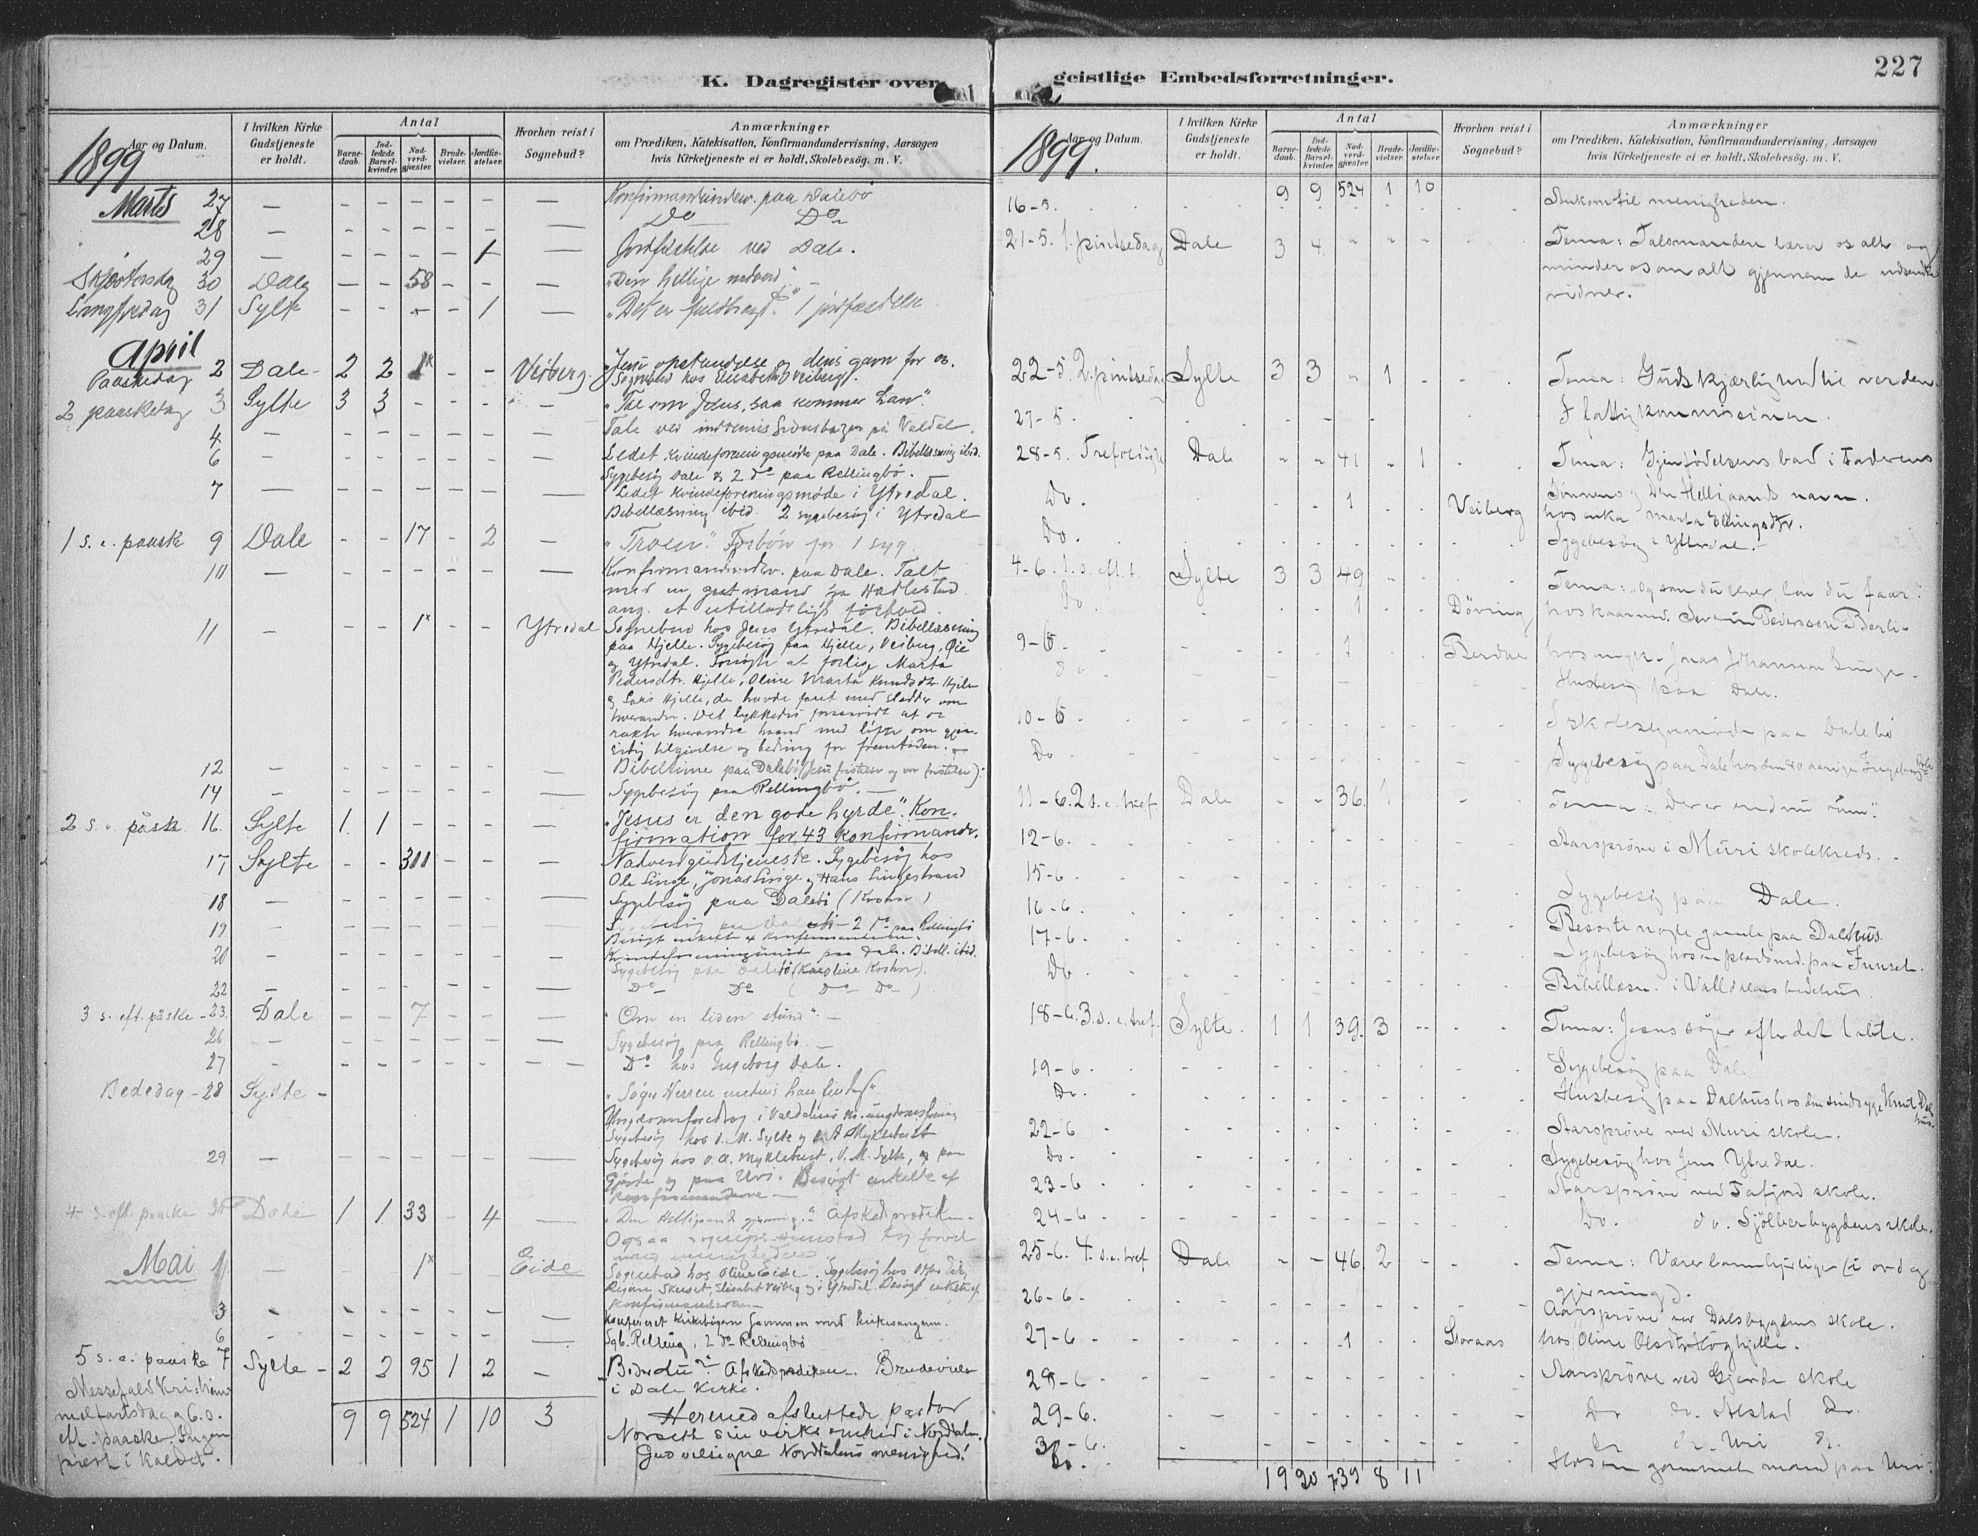 K. Dagregister over
Aar og Datum.
I hvilken Kirke Gudstjeneste er holdt.
Antal
Barnedaab.
Indledede Barselkvinder.
Nadverdgjæster.
Brudevielser.
Jordfæstelser.
Hvorhen reist i Sognebud?
Anmærkninger
om Prædiken, Katekisation, Konfirmandundervisning, Aarsagen
hvis Kirketjeneste ei er holdt, Skolebesög. m. V.
1899
Marts 27 — — — — — — — Konfirmandunderv. paa Dalebö
28 — — — — — — — Do Do
29 — — — — — 1 — Jordfæstelse ved Dale.
Skjærtorsdag 30 Dale — — 58 — — — "Den hellige nadverd"
Langfredag 31 Sylte — — — — 1 — "Det er fuldbragt." 1 jordfæstelse
April
Paaskedag 2 Dale 2 2 1x — — Veiberg. Jesu opstandelse og dens gavn for os.
Sognebud hos Elisabeth Veiberg.
2 paaskedag 3 Sylte 3 3 — — — — "Tal om Jesus, saa kommer han".
4 — — — — — — — Tale ved indremissionsbazar på Valdal.
6 — — — — — — — Ledet kvindeforeningsmöde paa Dale. Bibellæsning ibid.
Sygebesög Dale & 2 do paa Rellingbö.
7 — — — — — — — Ledet kvindeforeningsmöde i Ytredal.
Bibellæsning ibid. 2 sygebesög i Ytredal
1 s. e. paaske 9 Dale — — 17 — 2 — "Troen." Forbön for 1 syg.
10 — — — — — — — Konfirmandunderv. paa Dale. Talt
med en gift mand fra
ang. et utilladeligt forhold.
11 — — — 1x — — Ytredal Sognebud hos Jens Ytredal. Bibellæsning
paa Hjelle. Sygebesög paa Hjelle, Veiberg, Öie
og Ytredal. Forsögte at forlige Marta
Pedersdtr. Hjelle, Oline Marta Knudsdtr. Hjelle
og Lars Hjelle, de havde faret med sladder om
hverandre. Det lykkedes forsaavidt at de
rakte hverandre haand med löfte om gjen-
sidig tilgivelse og bedring for fremtiden.
12 — — — — — — — Bibeltime paa Dalebö (Jesu fristelser og vor fristelse).
14 — — — — — — — Sygebesög paa Rellingbö. —
2 s. e. påske 16. Sylte 1. 1 — — — — "Jesus er den gode hyrde". Kon-
firmation for 43 konfirmander.
17 Sylte — — 311 — — — Nadverdgudstjeneste. Sygebesög hos
Ole Linge, Jonas Linge og Hans Lingestrand
18 — — — — — — — Sygebesög paa Dalebö (Krohn)
19 — — — — — — — 2 do paa Rellingbö
Besögt enkelte af konfirmanderne.
20 — — — — — — — Kvindeforeningsmöde paa Dale. Bibell. ibid.
Sygebesög paa Dalebö (Karoline Krohn).
22 — — — — — — — Do Do (Do Do)
3 s. eft. påske — 23. Dale — — 7 — — — "Om en liden stund". —
26 — — — — — — — Sygebesög paa Rellingbö. —
27 — — — — — — — Do hos Ingeborg Dale.
Bededag — 28 Sylte — "Söger Herren medens han findes"
Ungdomsforedrag i Valdalens kr. ungdomsforening
Sygebesög hos O. M. Sylte og O. A. Myklebust
29 — Sygebesög hos O. A. Myklebust, O. M. Sylte, og paa
Gjörde og paa Uri. Besögt enkelte af
konfirmanderne —
4 s. eft. paaske 30 Dale 1 1 33 — 4 — "Den Helligaands gjerning." Afskedprædiken.
Mai 1 — — — 1x — — Eide Sognebud hos Oline Eide. Sygebesög hos
Elisabet Veiberg og i Ytredal. Besögt enkelte af
konfirmanderne —
3 — — — — — — — Konfereret Kirkebögerne sammen med kirkesangeren.
6 — — — — — — — Sgb. Relling, 2 do Rellingbö
5 s. e. paaske 7 Sylte — 2 2 95 1 2 — "Beder du?" Afskedprædiken. Brudevielse
i Dale Kirke.
Messefald Kristi him-
melfartsdag og 6. s.
eft. paaske. Ingen
prest i kaldet.
9 9 524 1 10 3
Hermed afsluttede pastor
Norseth sin virksomhed i Norddalen.
Gud velsigne Norddalens menighed!
geistlige Embedsforretninger.
227
Aar og Datum.
I hvilken Kirke Gudstjeneste er holdt.
Antal
Barnedaab.
Indledede Barselkvinder.
Nadverdgjæster.
Brudevielser.
Jordfæstelser.
Hvorhen reist i Sognebud?
Anmærkninger
om Prædiken, Katekisation, Konfirmandundervisning, Aarsagen
hvis Kirketjeneste ei er holdt, Skolebesög m. V.
1899.
9 9 524 1 10
16–5. Ankom til menigheden.
21–5. 1. pintsedag Dale 3 4 " " " Tema: Talsmanden lærer os alt og
minder os om alt gjennem de udsendte
vidner.
22–5. 2. pintsedag Sylte 3 3 " 1 Tema: Guds kjærlighed til verden.
27–5. I fattigkommissionen.
28–5. Trefoldigh. Dale " " 41 " 1 Tema: Gjenfödelsens bad i Faderens
Sönnens og Den Helligaands navn.
Do. 1 Veiberg hos enke Marta Ellingsdtr.
Do. Sygebesög i Ytterdal.
4–6. 1. s. eft. t. Sylte 3 3 49 Tema: "Og som du lever, lön du faar"
Do. 1 Döving hos kaarmd. Severin Pederssen Berli
9–6 1 Berdal hos ungk. Jonas Johannsen Linge.
Do Husbesög paa Dale.
10–6 I skolestyremöde paa Dalebö
Do Sygebesög paa Dale hos den 80 aarige Ingeborg Dale
11–6. 2 s. e. tref. Dale — — 36. 1 Tema: "Der er endnu rum".
12–6. Aarspröve i Muri skolekreds.
15–6 Sygebesög paa Dale.
16–6. Besögte nogle gamle paa Dalhus.
17–6. Sygebesög hos en pladsmd. paa
Do. Bibellæsn. i Valldalens bedehus
18–6. 3. s. e. tref. Sylte. 1 1 39. 3 Tema: Jesus söger efter det tabte.
19–6 Sygebesög paa Dale
Do. Husbesög paa Dalhus hos den sindssyge Knut Dalhus.
22–6 Aarspröve ved Muri skole.
Do. Sygebesög hos Jens Ytredal.
23–6 Aarspröve ved Tafjord skole.
24–6 Do. do. Sjölberbygdens skole.
25–6. 4. s. e. tref Dale — — 46 2 Tema: Værer barmhjertige (i ord og
gjerning).
26–6. Aarspröve ved Dalsbygdens skole.
27–6 1 Storaas hos Oline Olsdtr Höghjelle.
28–6 Aarspröve ved Gjerde skole
29–6. Do do. Alstad do.
30–6. Do do. Uri do.
Do. Hos en gammel mand paa Uri.
19 20 739 8 11